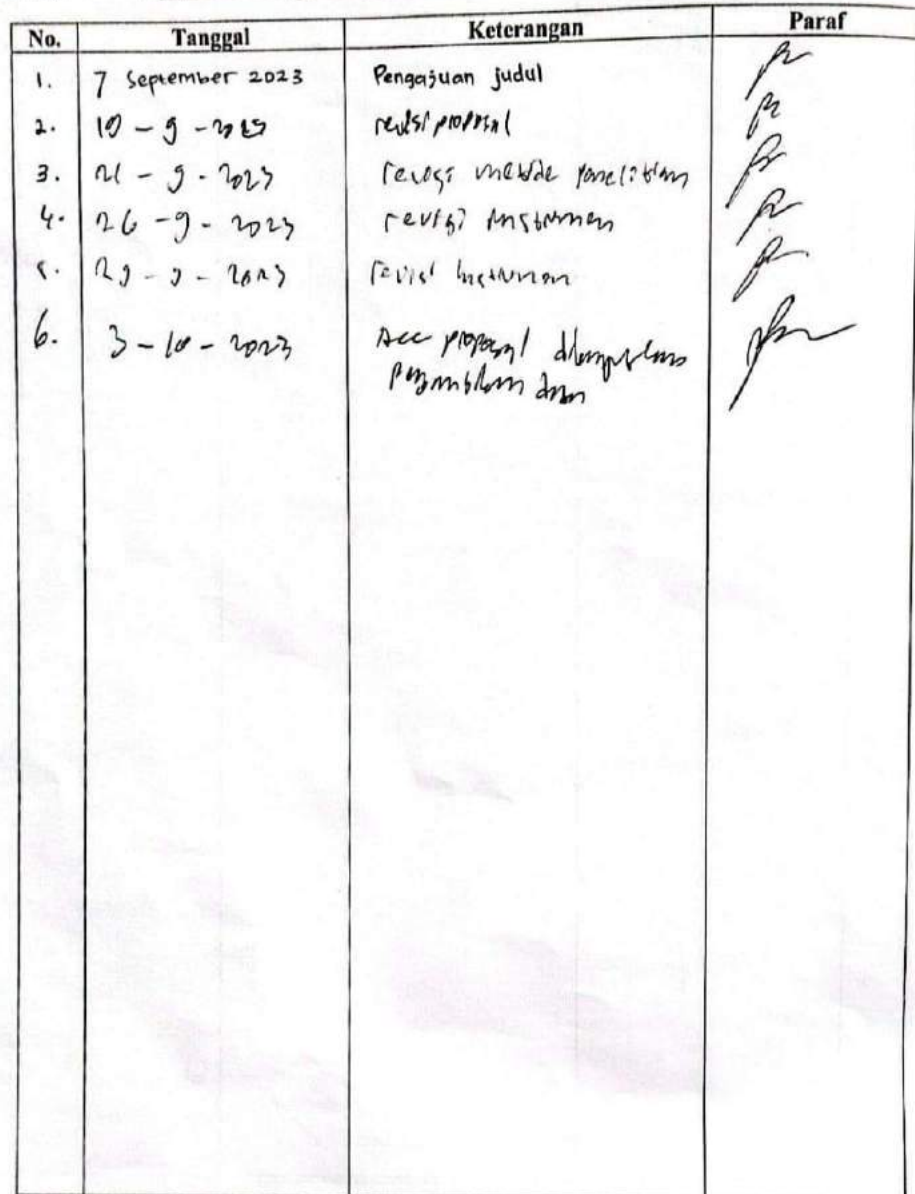 No. Tanggal Keterangan Paraf
1. 7 September 2023 Pengajuan judul
2. - 9 - 2023 revisi proposal
3. 21 - 9 - 2023 revisi metode penelitian
4. 26 - 9 - 2023 revisi instrumen
5. 29 - 9 - 2023 revisi instrumen
6. 3 - 10 - 2023 Acc proposal